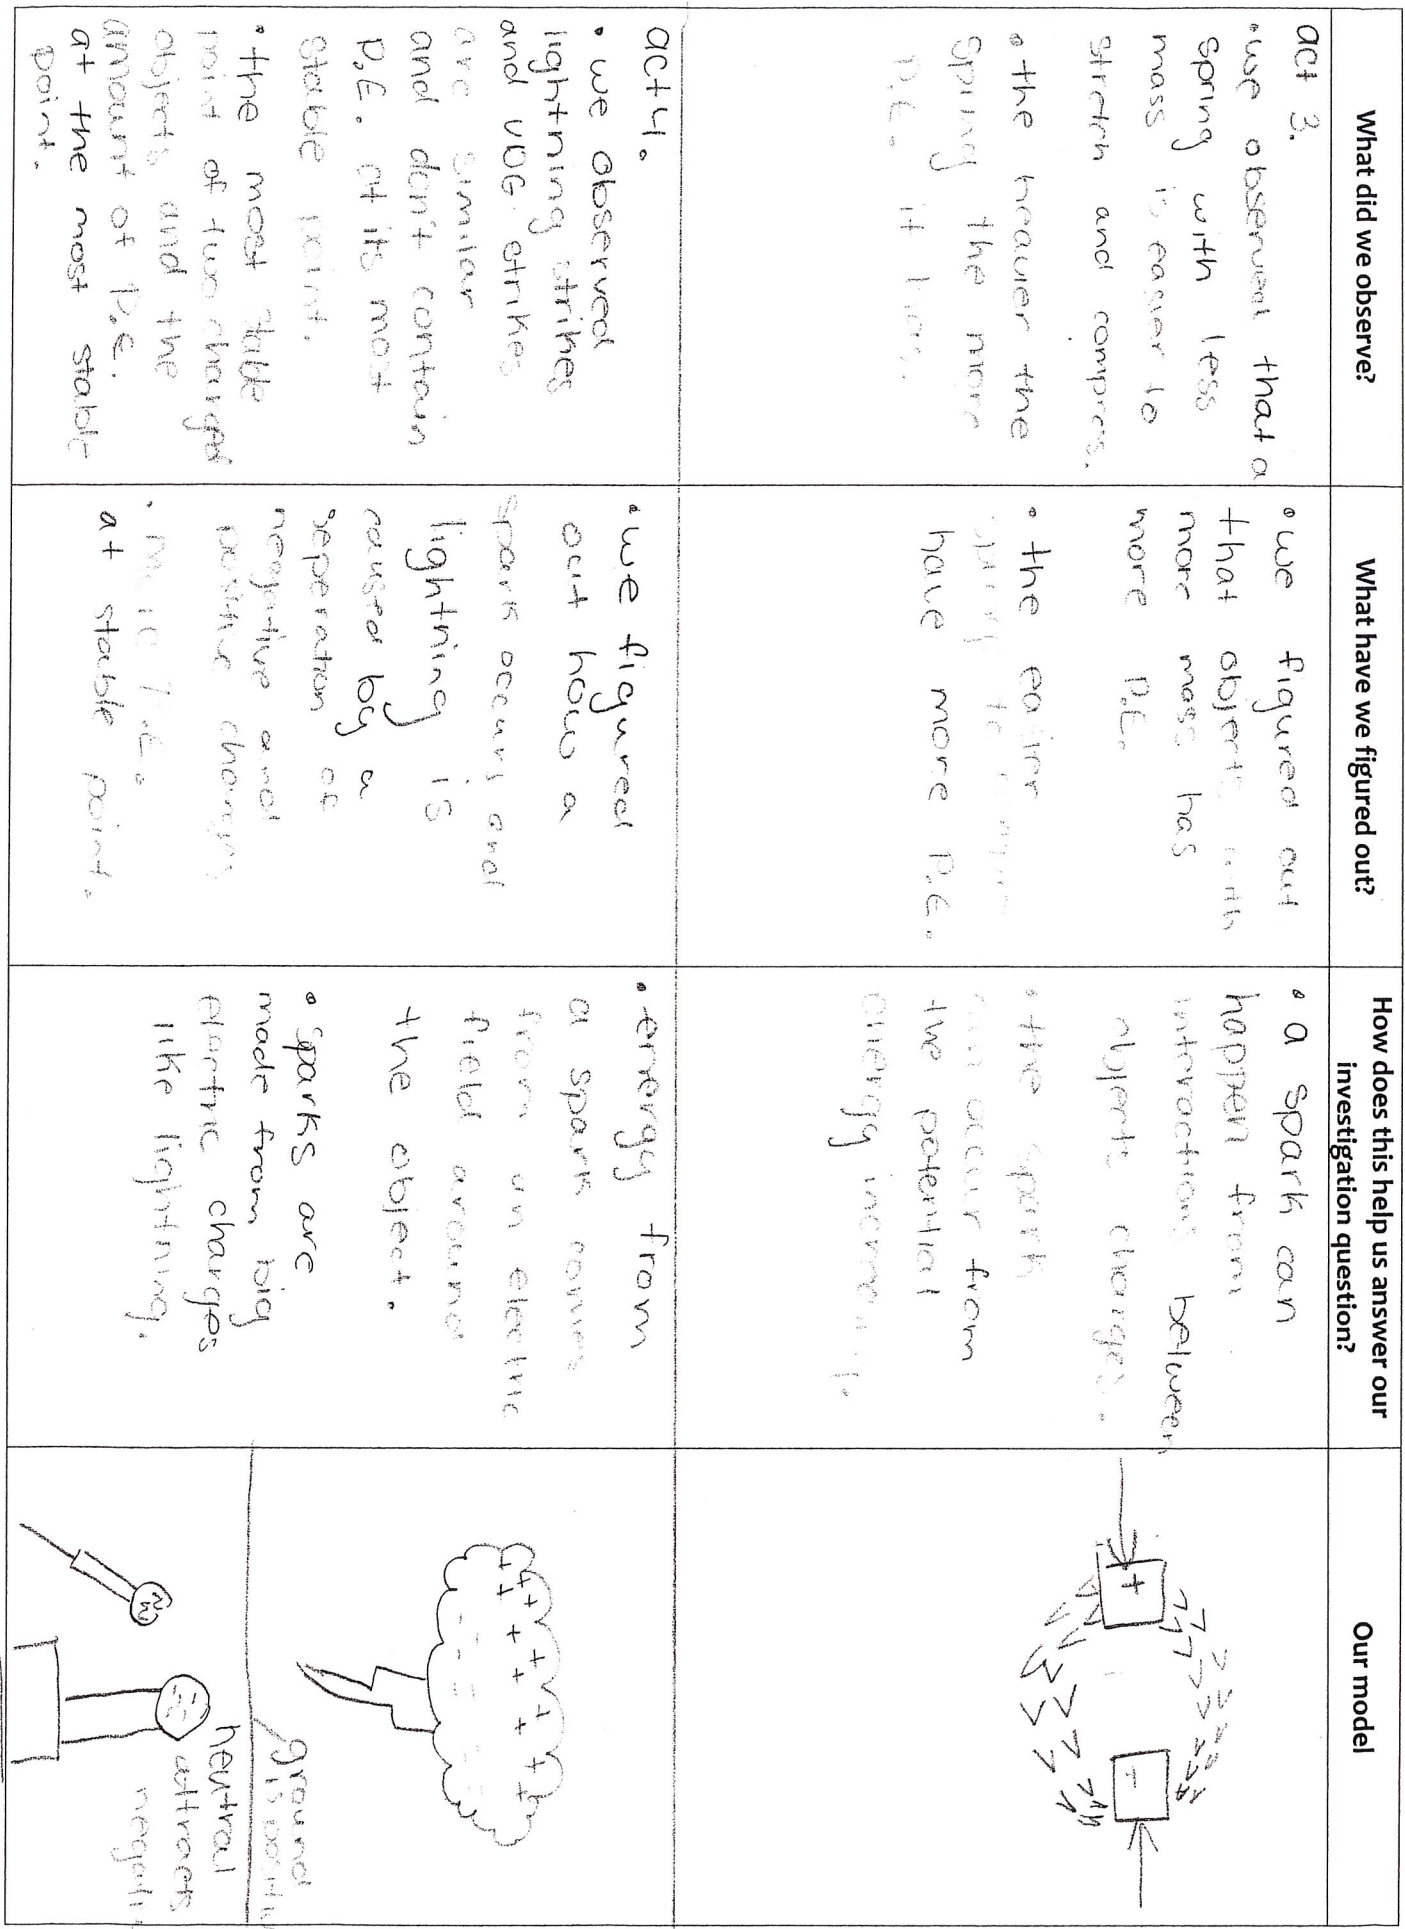 What did we observe?
What have we figured out?
How does this help us answer our
investigation question?
Our model
act 3.
• we observed that a
spring with less
mass is easier to
stretch and compres.
• the heavier the
spring the more
P.E. it has.
• we figured out
that objects with
more mass has
more P.E.
• the easier
have more P.E.
• a spark can
happen from
intractions between
objects charges.
• the spark
can occur from
the potential
energy
+
-
act 4.
• we observed
lightning strikes
and VDG strikes
are similar
and don't contain
P.E. at its most
stable point.
• the most stable
point of two charged
objects and the
amount of P.E.
at the most stable
point.
• we figured
out how a
spark occurs and
lightning is
caused by a
seperation of
negative and
positive charges
•
at stable point.
• energy from
a spark comes
from an electric
field around
the object.
• sparks are
made from big
electric charges
like lightning.
+ + + + + + + + + + +
- - - -
ground
is
neutral
attracts